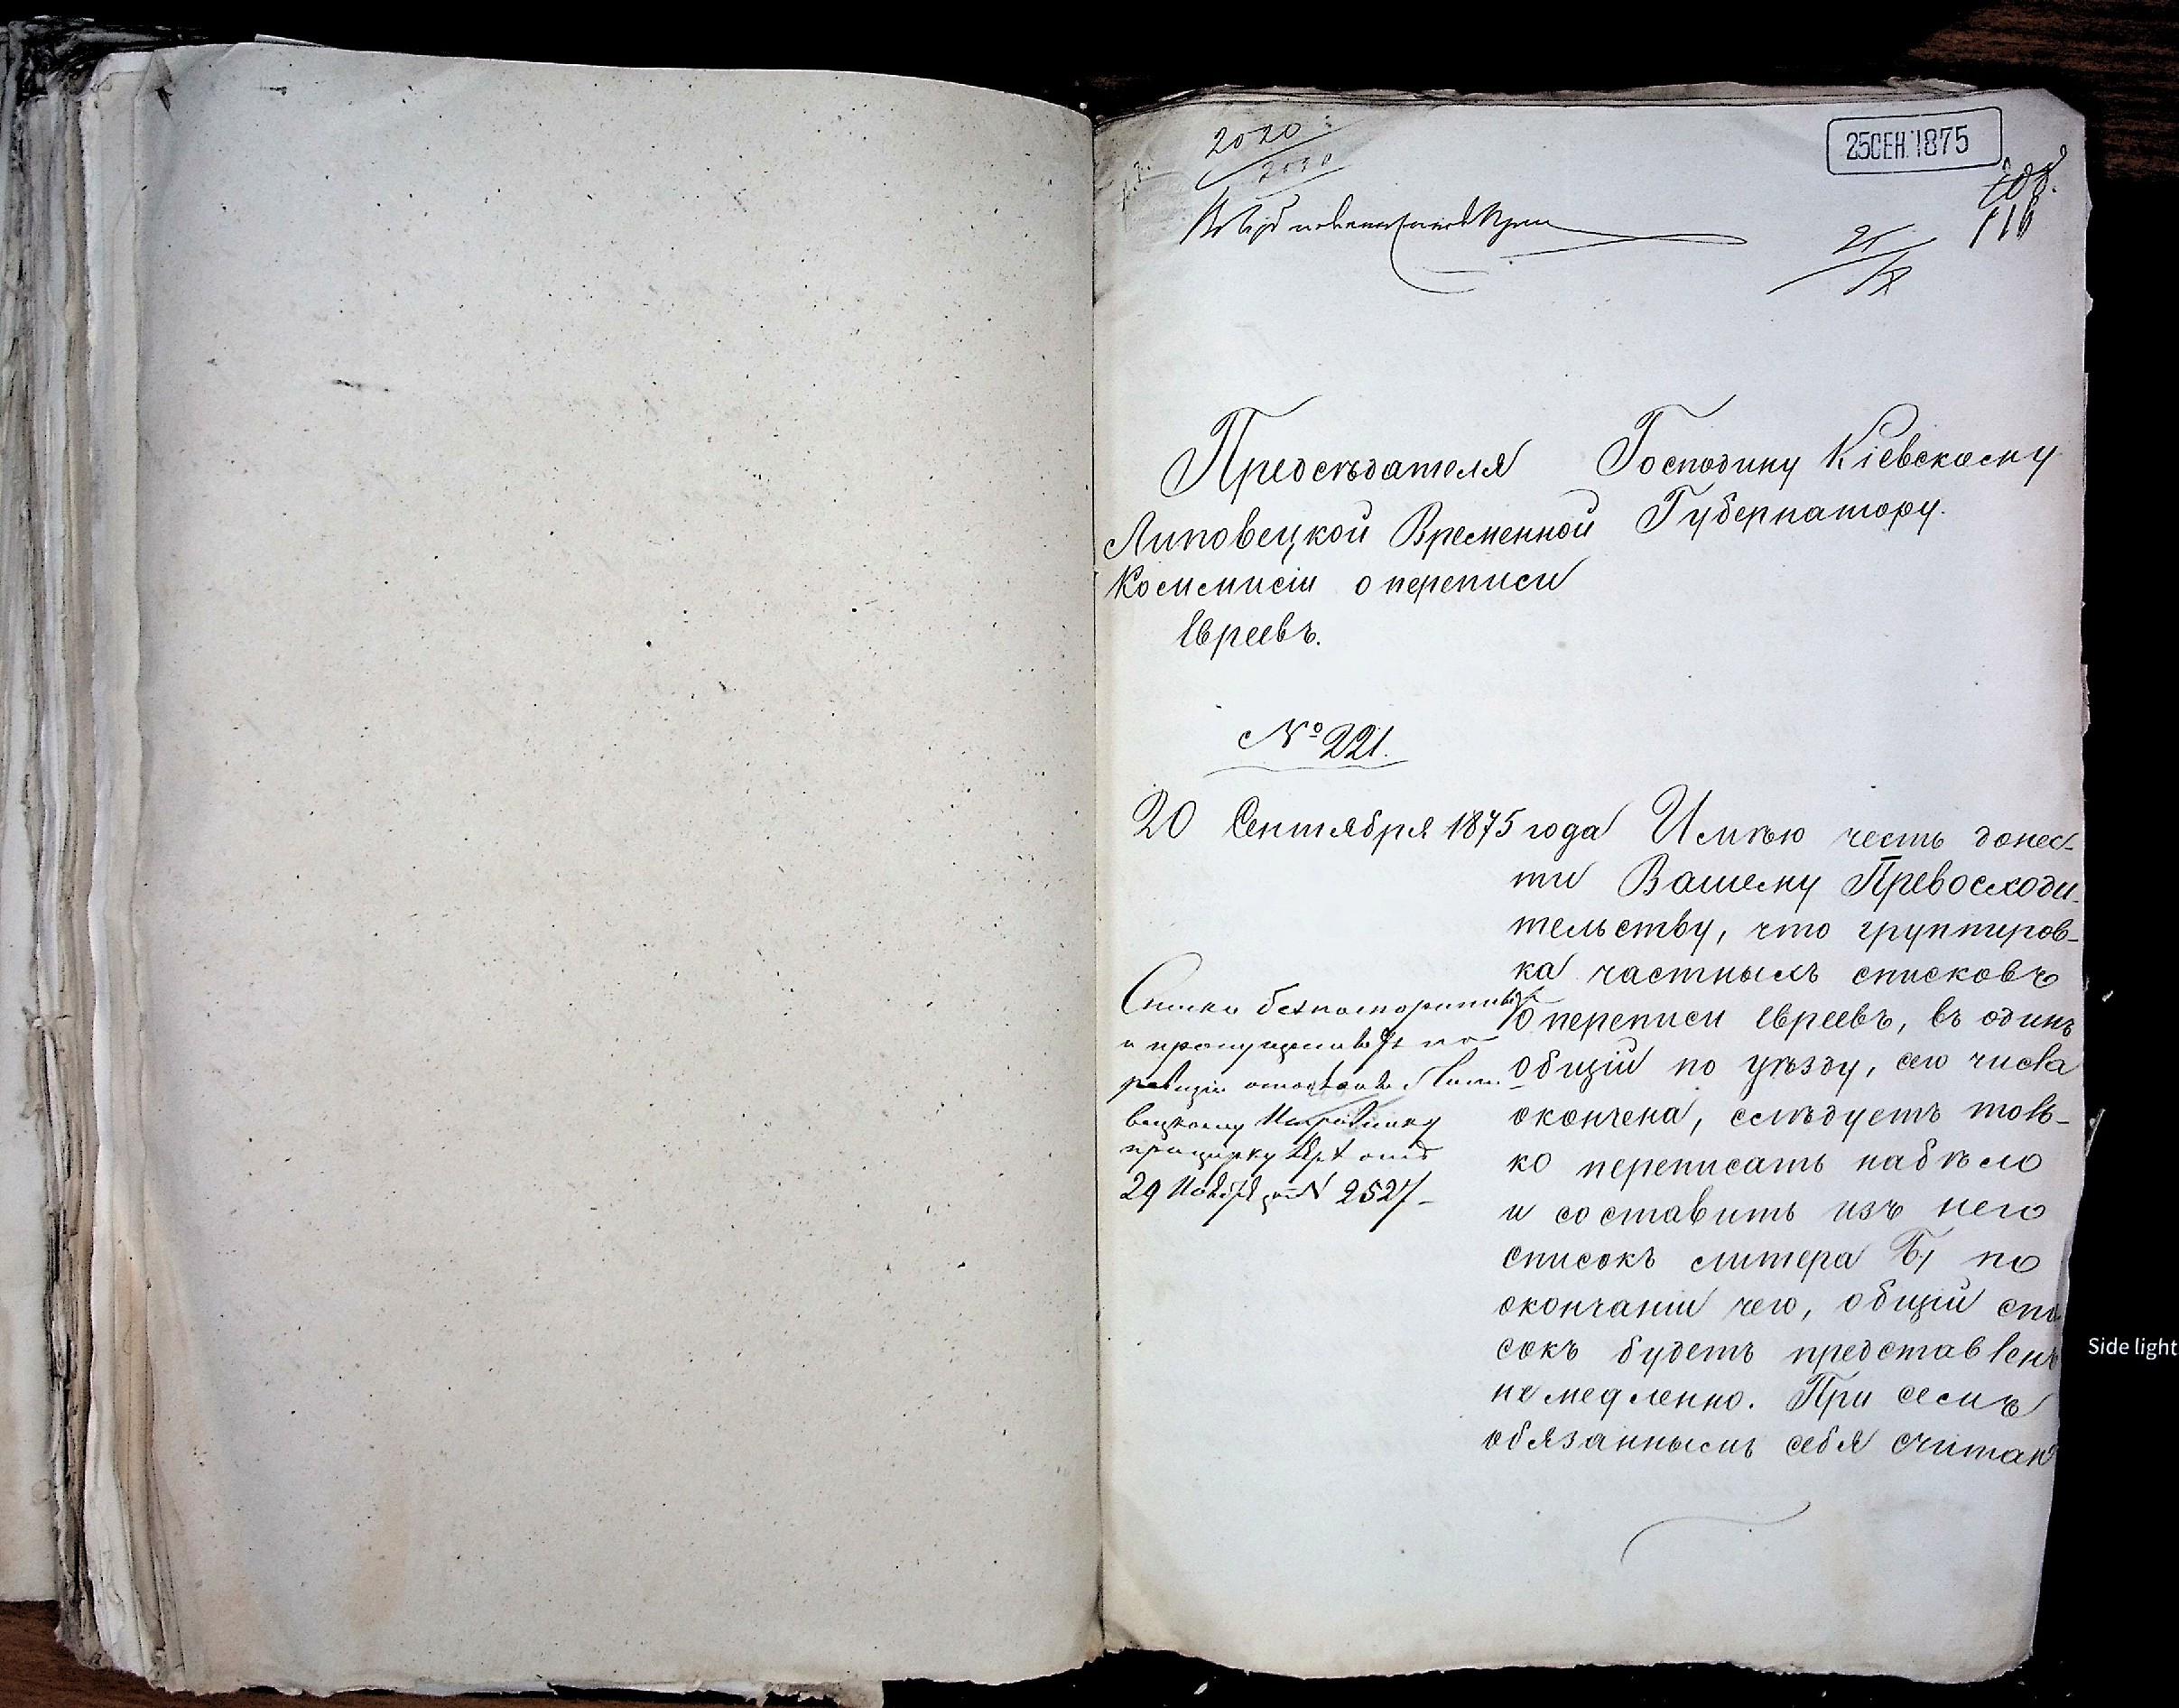 2020
2030
25 СЕН. 1875
116
25
IX
Предсѣдателя
Липовецкой Временной
Коммисіи о переписи
Евреевъ.
Господину Кіевскому
Губернатору.
№ 221.
20 Сентября 1875 года
Имѣю честь донес-
ти Вашему Превосходи-
тельству, что группиров-
ка частныхъ списковъ
о переписи евреевъ, въ одинъ
общій по уѣзду, сего числа
окончена, слѣдуетъ толь-
ко переписать набѣло
и составить изъ него
списокъ литера Б, по
окончаніи чего, общій спи
сокъ будетъ представленъ
немедленно. При семъ
обязаннымъ себя считаю
Списки
и пропущенныхъ по
ревизіи Липо
вецкому Исправнику
при отъ
29 Ноября за N 2527
Side light